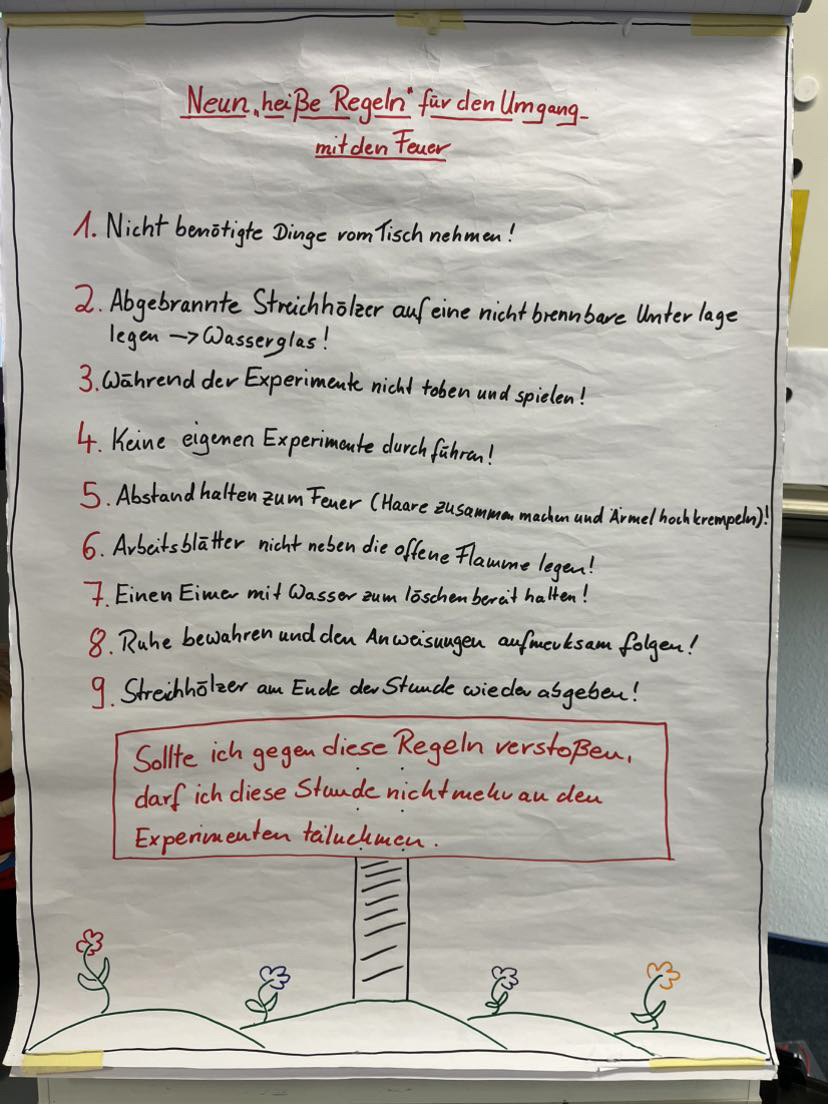 Neun „heiße Regeln" für den Umgang
mit den Feuer
1. Nicht benötigte Dinge vom Tisch nehmen!
2. Abgebrannte Streichhölzer auf eine nicht brennbare Unterlage
legen → Wasserglas!
3. Während der Experimente nicht toben und spielen!
4. Keine eigenen Experimente durchführen!
5. Abstand halten zum Feuer (Haare zusammen machen und Ärmel hochkrempeln)!
6. Arbeitsblätter nicht neben die offene Flamme legen!
7. Einen Eimer mit Wasser zum löschen bereit halten!
8. Ruhe bewahren und den Anweisungen aufmerksam folgen!
9. Streichhölzer am Ende der Stunde wieder abgeben!
Sollte ich gegen diese Regeln verstoßen,
darf ich diese Stunde nicht mehr an den
Experimenten teilnehmen.